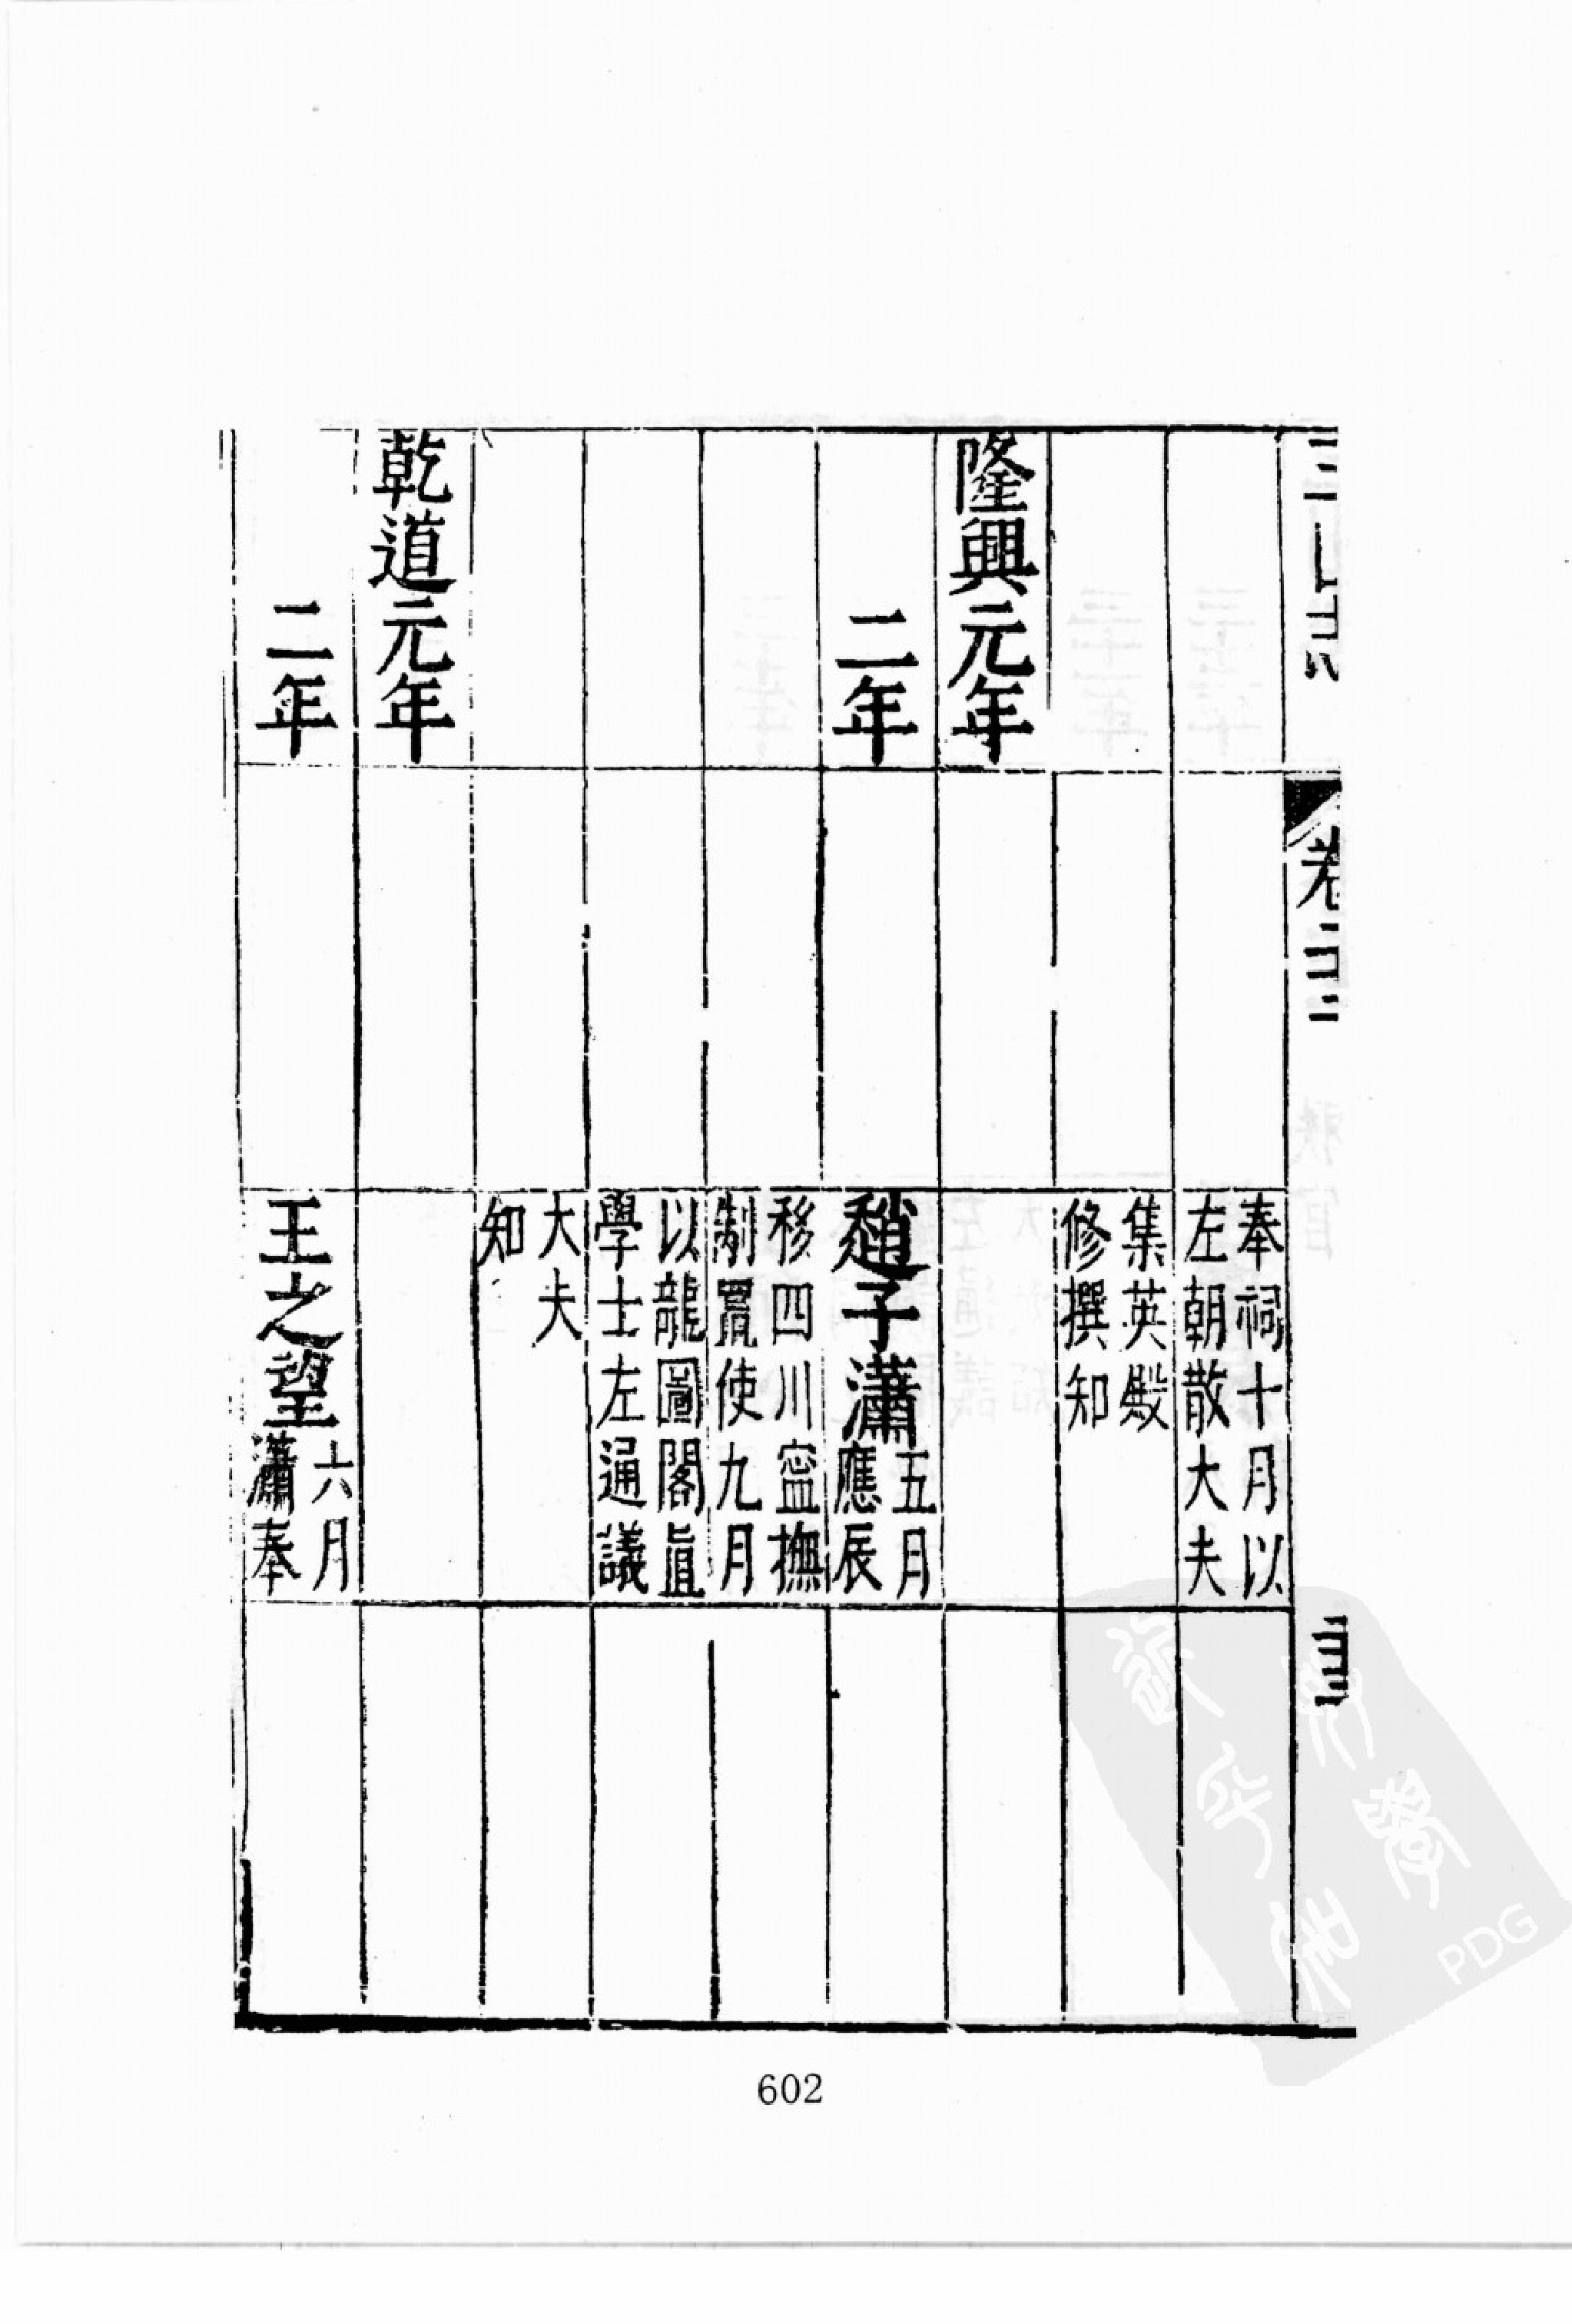 卷二十二
奉祠十月以
左朝散大夫
集英殿
修撰知
隆興元年
二年
趙子潚
五月
應辰
移四川宣撫
制置使九月
以龍圖閣直
學士左通議
大夫
知
乾道元年
二年
王之望
六月
潚奉
602
PDG